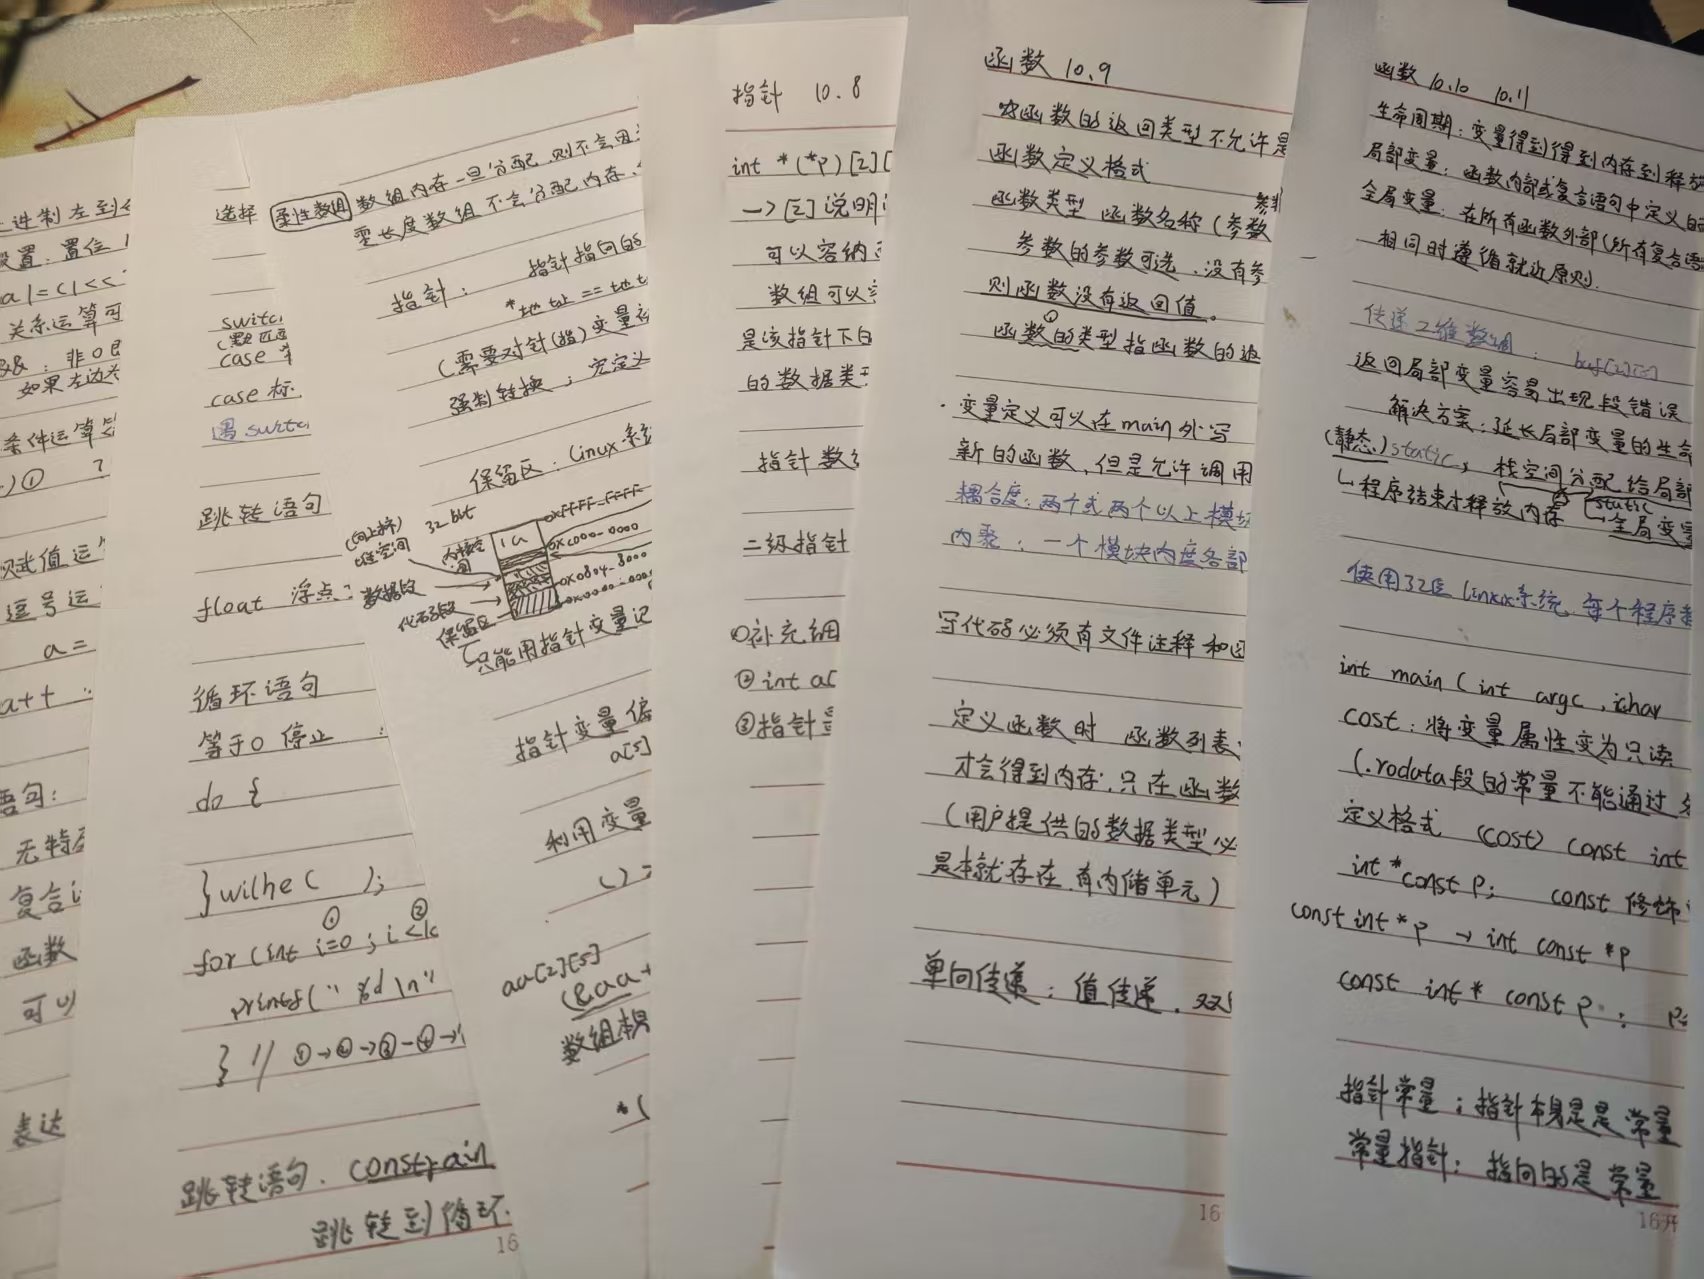 二进制左到
设置：置位
a|=(1<<
关系运算可
&&：非0即
如果左边为
条件运算
)① ?
赋值运
逗号运
a=
a++
语句：
无特
复合
函数
可以
表达
选择
switc
(默认匹配
case
case 标
遇 switc
跳转语句
float 浮点：
循环语句
等于0 停止：
do {
}wilhe( );
① ②
for(int i=0; i<
printf("%d\n"
} // ①→②→③-④→
跳转语句. constrain
跳转到循环.
16
柔性数组 数组内存一旦分配,则不会再
零长度数组不会分配内存.
指针： 指针指向的
*地址==地
(需要对针(指)变量
强制转换；完定义
保留区：linux系统
32bit
(向上增)
堆空间
内核空间
1G
0xFFFF-FFFF
0xC000-0000
0x0804-8000
0x0000-0000
数据段
代码段
保留区
只能用指针变量记
指针变量偏
a[5]
利用变量
()
aa[2][5]
(&aa+
数组本身
*(
指针 10.8
int *(*p)[2][
—>[2]说明
可以容纳
数组可以
是该指针下的
的数据类型
指针数
二级指针
①补充细
②int a[
③指针
函数 10.9
函数的返回类型不允许是
函数定义格式
函数类型 函数名称(参数
参数的参数可选、没有参
则函数没有返回值。
函数的类型指函数的返
·变量定义可以在main外写
新的函数,但是允许调用
耦合度：两个或两个以上模块
内聚：一个模块内度各部
写代码必须有文件注释和
定义函数时 函数列表
才会得到内存；只在函数
(用户提供的数据类型必
是本就存在,有内储单元)
单向传递：值传递. 双
16
函数 10.10 10.11
生命周期：变量得到得到内存到释放
局部变量：函数内部或复合语句中定义的
全局变量：在所有函数外部(所有复合语
相同时遵循就近原则.
传递二维数组： buf[2][3]
返回局部变量容易出现段错误
解决方案：延长局部变量的生命
(静态)static； 栈空间分配给局部
static
↳程序结束才释放内存 ↳全局变量
使用32位linux系统,每个程序
int main(int argc , char
cost：将变量属性变为只读
(.rodata段的常量不能通过
定义格式 (cost) const int
int *const p; const 修饰
const int *p → int const *p
const int* const p ; p
指针常量：指针本身是是常量
常量指针：指向的是常量
16开